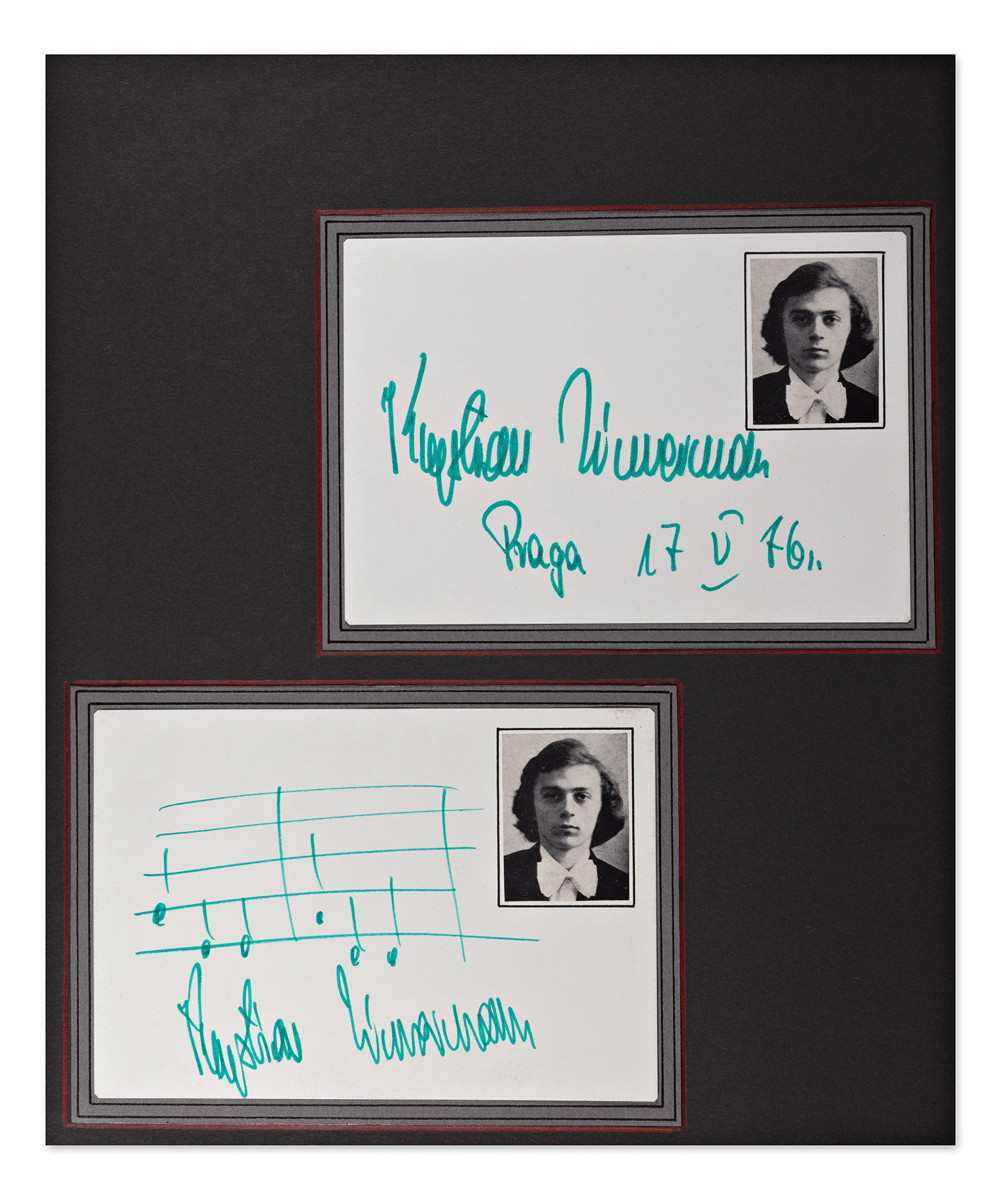 Krystian Zimerman
Praga 17 V 76r.
Krystian Zimerman